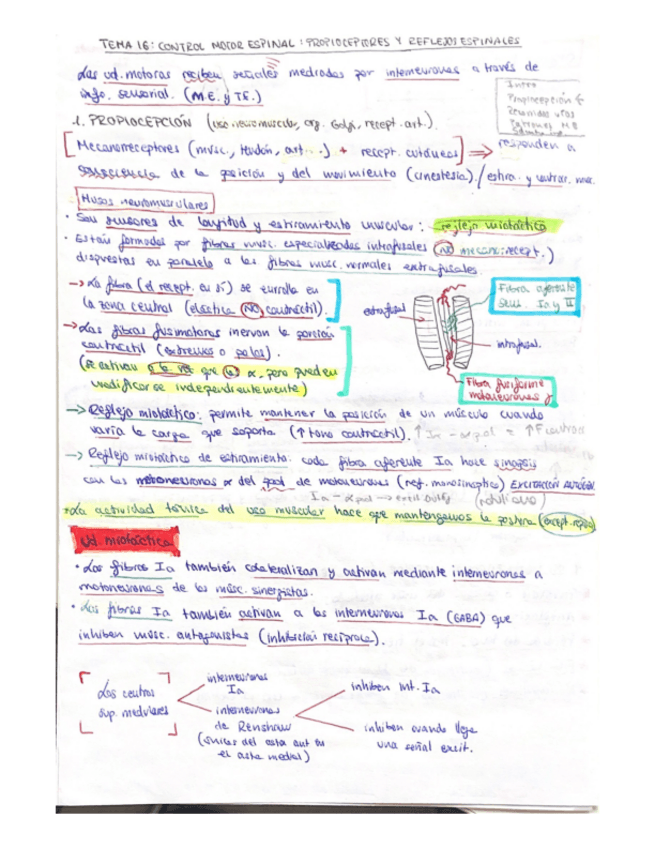 TEMA 16: CONTROL MOTOR ESPINAL: PROPIOCEPTORES Y REFLEJOS ESPINALES
Las ud. motoras reciben señales mediadas por interneuronas a través de
info. sensorial. (M.E. y T.E.)
Intro
Propiocepción
1. PROPIOCEPCIÓN (uso neuromuscular, org. Golgi, recept. art.).
[Mecanorreceptores (musc., tendón, art...) + recept. cutáneas] ⇒ responden a
de la posición y del movimiento (cinestesia)/estira. y contrac. musc.
Husos neuromusculares
· Son sensores de longitud y estiramiento muscular: reflejo miotático
· Están formados por fibras musc. especializadas intrafusales (NO mecanorrecept.)
dispuestas en paralelo a las fibras musc. normales extrafusales.
→ La fibra (el recept. en sí) se enrolla en
la zona central (elástica NO contráctil).
→ Las fibras fusimotoras inervan la porción
contráctil (extremos o polos).
(se activan a la vez que la α, pero pueden
modificarse independientemente)
extrafusal
Fibra aferente
sens. Ia y II
intrafusal
Fibra fusiforme
motoneuronas γ
→ Reflejo miotático: permite mantener la posición de un músculo cuando
varía la carga que soporta (↑ tono contráctil).
→ Reflejo miotático de estiramiento: cada fibra aferente Ia hace sinapsis
con las motoneuronas α del pool de motoneuronas (ref. monosináptico)
(rotuliano)
*La actividad tónica del uso muscular hace que mantengamos la postura (except. reposo)
Ud. miotática
· Las fibras Ia también colateralizan y activan mediante interneuronas a
motoneuronas de los músc. sinergistas.
· Las fibras Ia también activan a las interneuronas Ia (GABA) que
inhiben músc. antagonistas (inhibición recíproca).
Los centros
sup. medulares
interneuronas
Ia
interneuronas
de Renshaw
(únicas del asta ant en
el asta medial)
inhiben int. Ia
inhiben cuando llega
una señal excit.